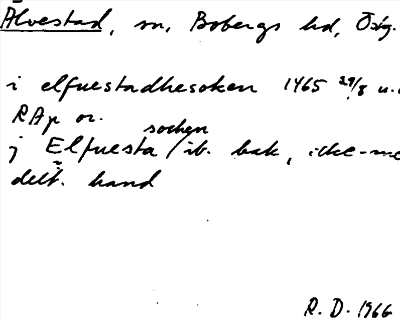 Älvestad, sn, Bobergs hd, Östg.
i elfuestadhesoken 1465 29/8 u.
RAp or.
j Elfuesta sochen ib. bak, icke-me
delt. hand
R. D. 1966